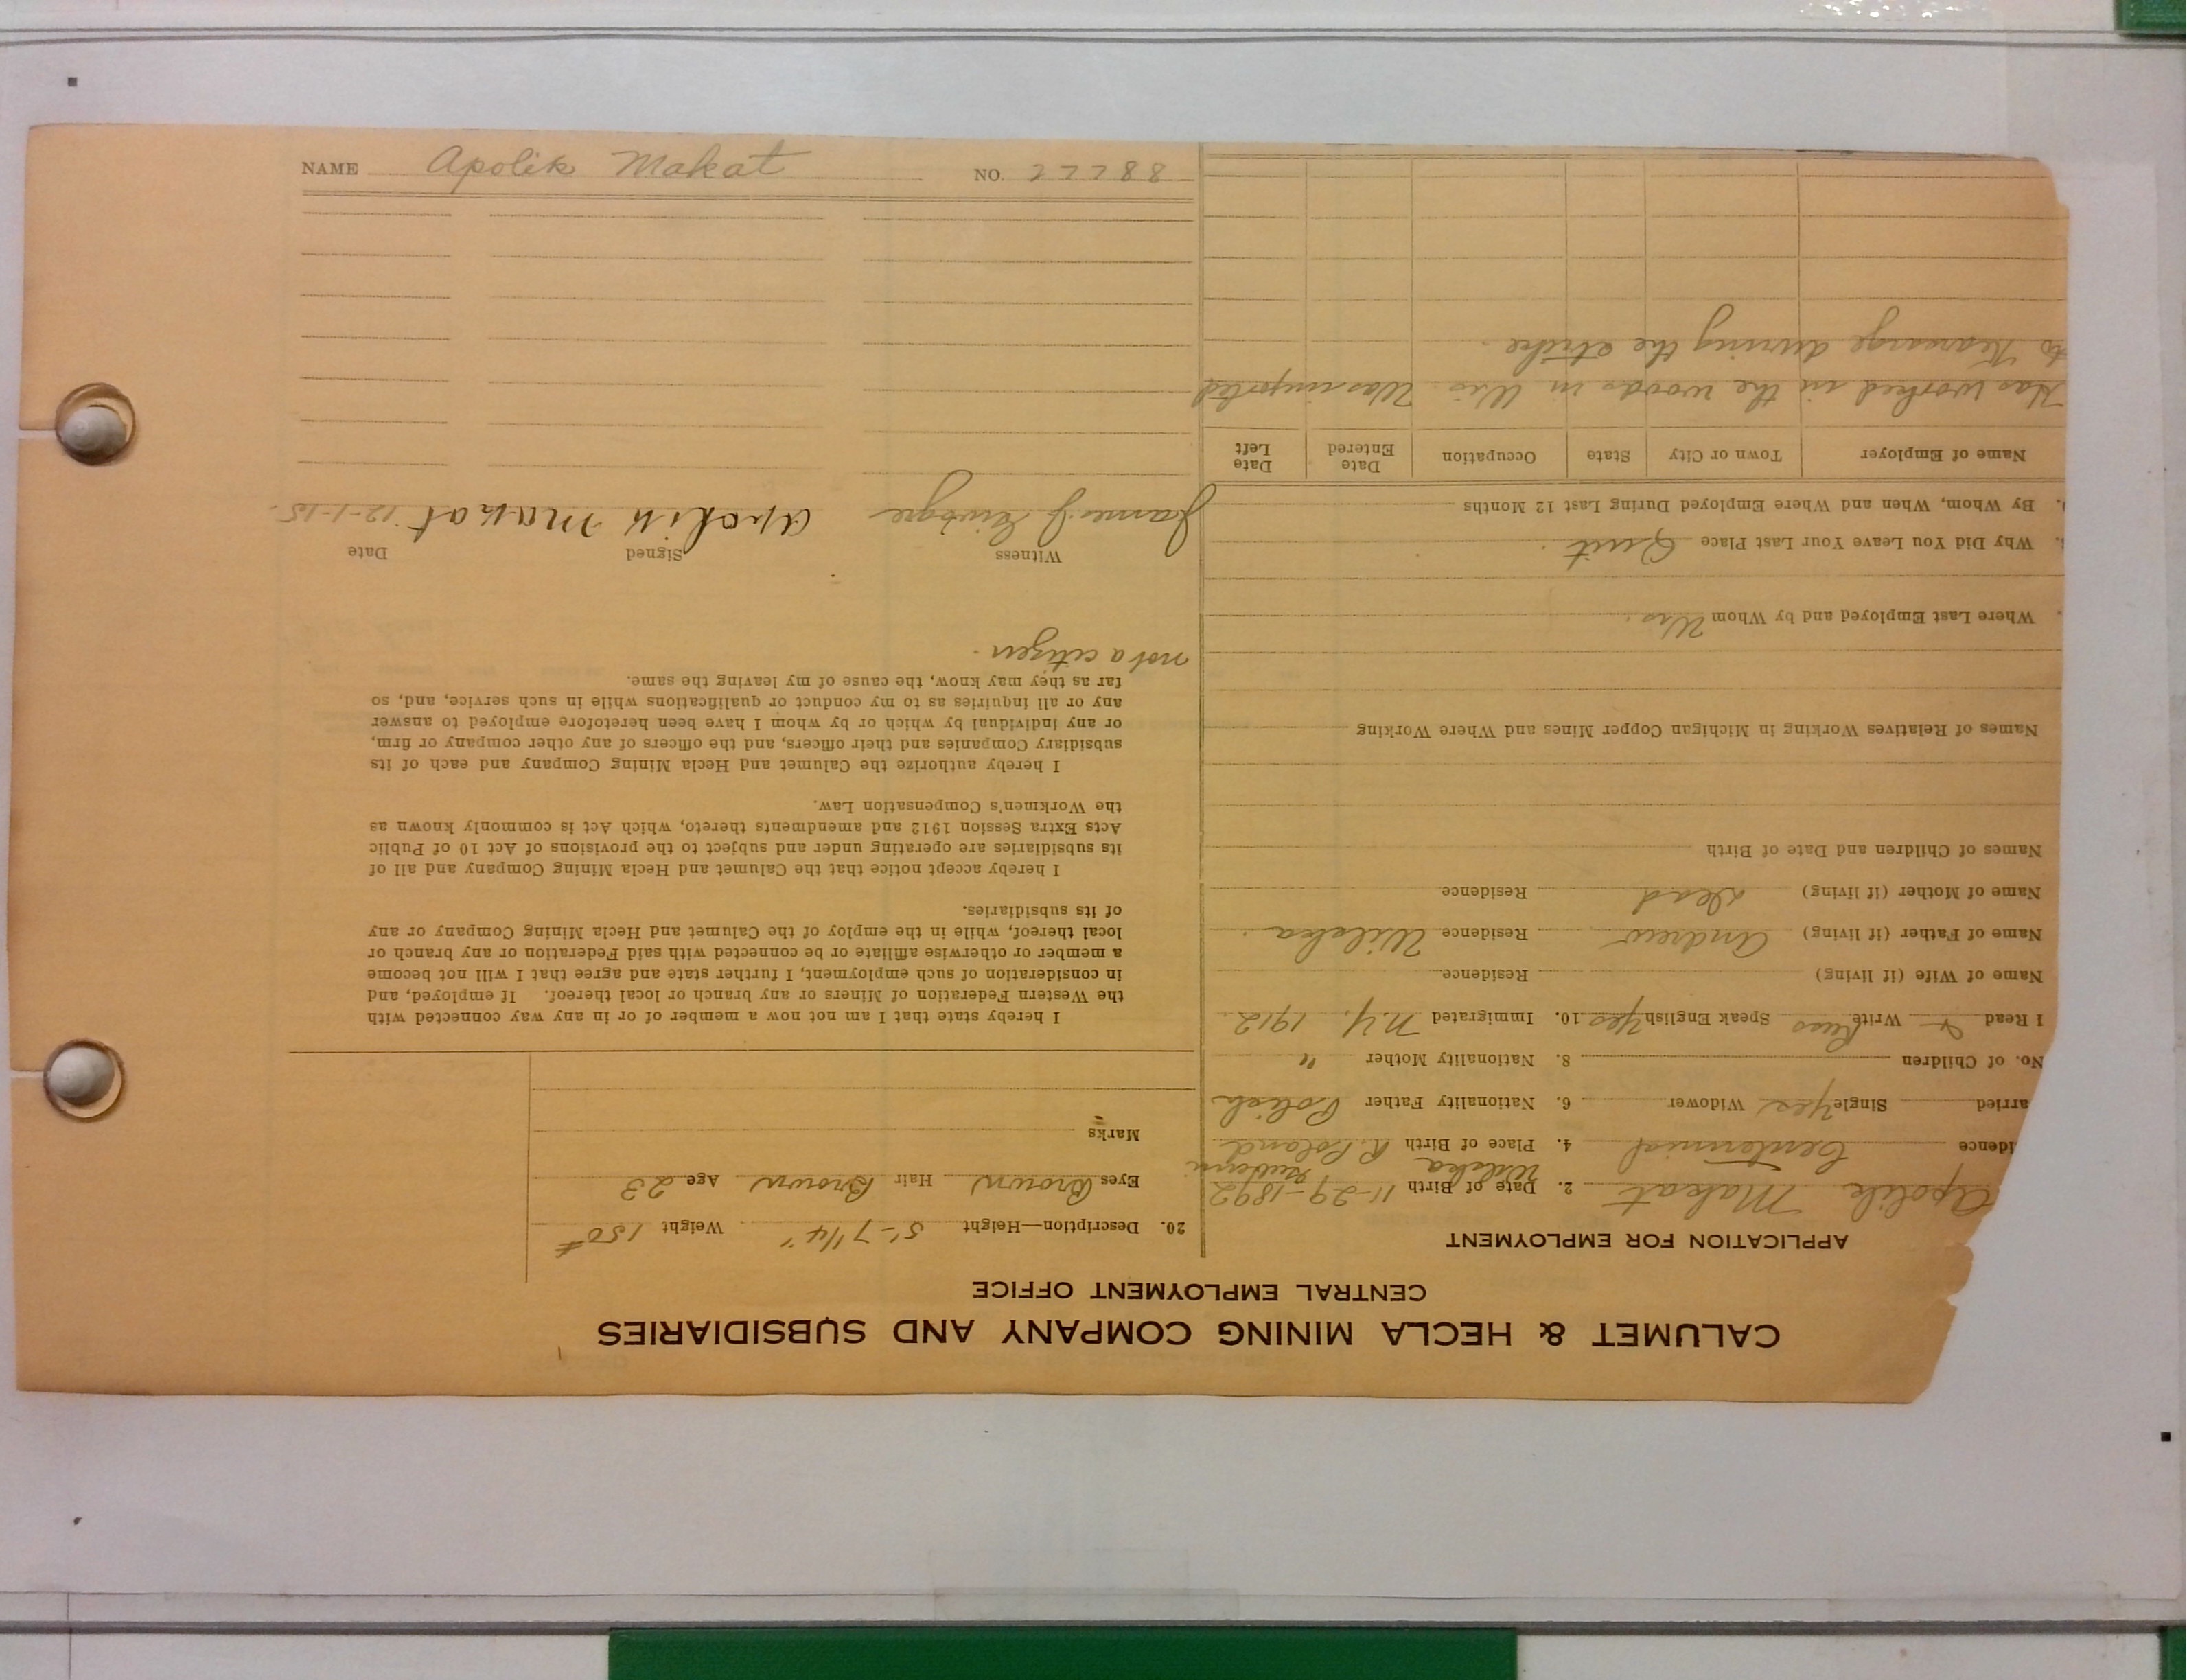 NAME Apolik Makat NO. 22288
CALUMET & HECLA MINING COMPANY AND SUBSIDIARIES
CENTRAL EMPLOYMENT OFFICE
APPLICATION FOR EMPLOYMENT
Apolik Makat 2. Date of Birth 11-29-1892
idence Centennial 4. Place of Birth R. Poland
arried Single Yes Widower 6. Nationality Father Polish
No. of Children 8. Nationality Mother "
I Read & Write Russ Speak English Yes 10. Immigrated N.Y. 1912.
Name of Wife (if living) Residence
Name of Father (if living) Andrew Residence
Name of Mother (if living) Dead Residence
Names of Children and Date of Birth
Names of Relatives Working in Michigan Copper Mines and Where Working
Where Last Employed and by Whom Wis.
Why Did You Leave Your Last Place Quit.
By Whom, When and Where Employed During Last 12 Months
Name of Employer Town or City State Occupation Date Entered Date Left
Has worked in the woods in Wis. Was imported
to Kearsarge durring the strike.
20. Description—Height 5'-7 1/4" Weight 150#
Eyes Brown Hair Brown Age 23
Marks
I hereby state that I am not now a member of or in any way connected with
the Western Federation of Miners or any branch or local thereof. If employed, and
in consideration of such employment, I further state and agree that I will not become
a member or otherwise affiliate or be connected with said Federation or any branch or
local thereof, while in the employ of the Calumet and Hecla Mining Company or any
of its subsidiaries.
I hereby accept notice that the Calumet and Hecla Mining Company and all of
its subsidiaries are operating under and subject to the provisions of Act 10 of Public
Acts Extra Session 1912 and amendments thereto, which Act is commonly known as
the Workmen's Compensation Law.
I hereby authorize the Calumet and Hecla Mining Company and each of its
subsidiary Companies and their officers, and the officers of any other company or firm,
or any individual by which or by whom I have been heretofore employed to answer
any or all inquiries as to my conduct or qualifications while in such service, and, so
far as they may know, the cause of my leaving the same.
not a citizen.
Witness Signed Date
James J. Apolik Makat 12-1-15.